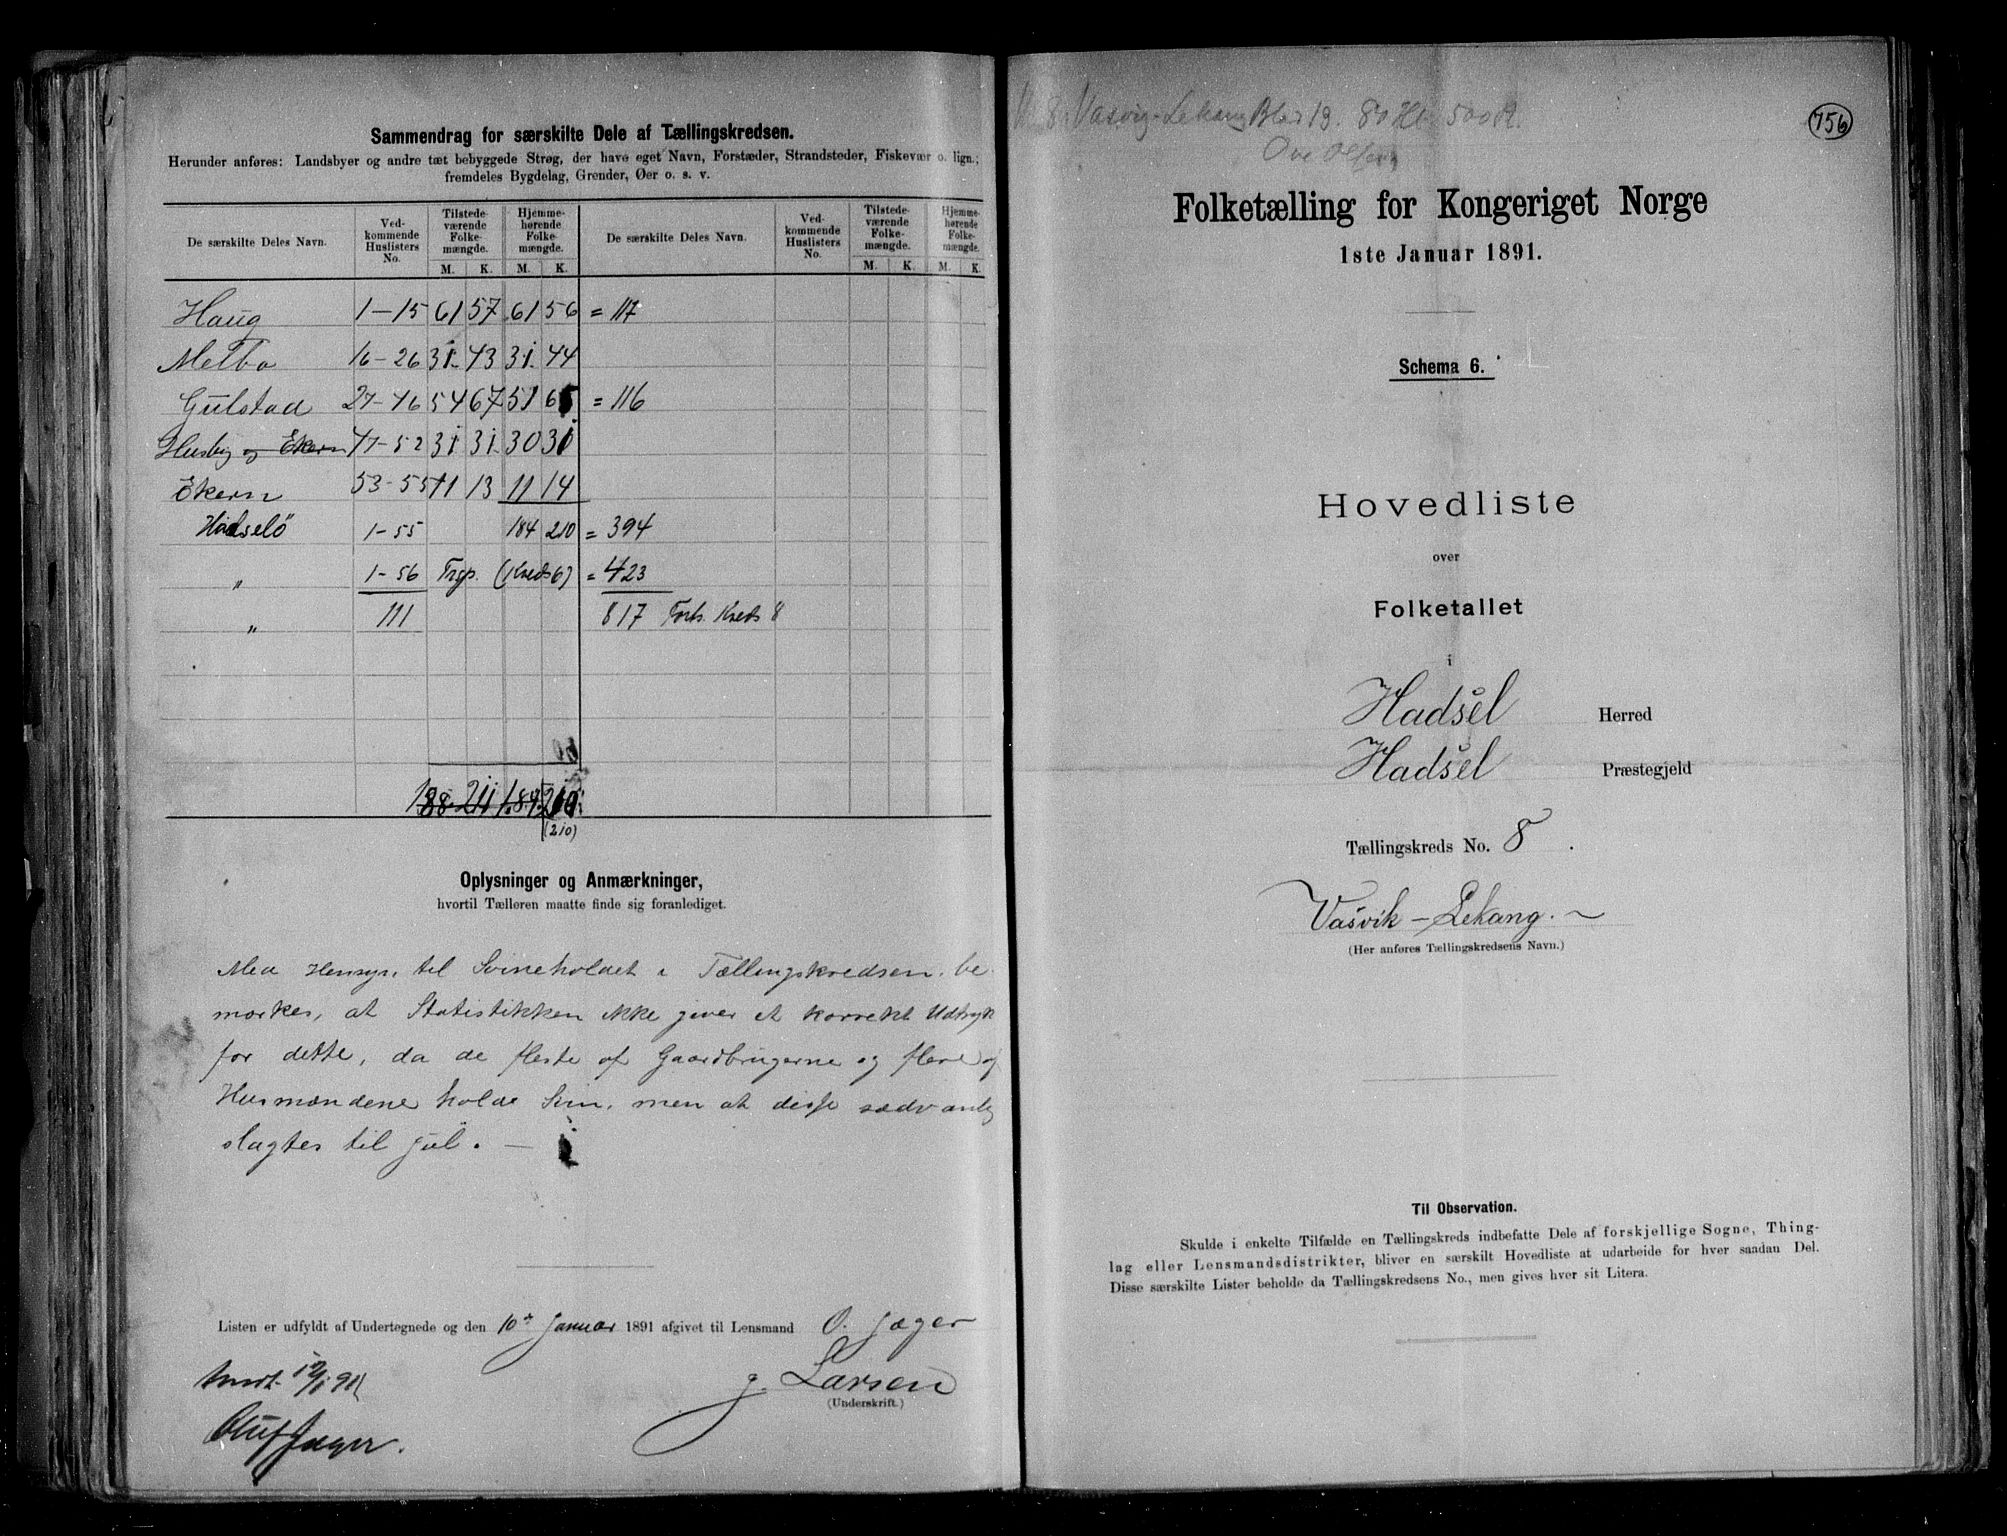 Sammendrag for særskilte Dele af Tællingskredsen.
Herunder anføres: Landsbyer og andre tæt bebyggede Strøg, der have eget Navn, Forstæder, Strandsteder, Fiskevær o. lign.;
fremdeles Bygdelag, Grender, Øer o. s. v.
De særskilte Deles Navn. Ved-kommende Huslisters No. Tilstede-værende Folke-mængde. Hjemme-hørende Folke-mængde. De særskilte Deles Navn. Ved-kommende Huslisters No. Tilstede-værende Folke-mængde. Hjemme-hørende Folke-mængde.
M. K. M. K. M. K. M. K.
Haug 1-15 61 57 61 56 = 117
Melbo 16-26 31 43 31 44
Gulstad 27-46 54 67 51 65 = 116
Husby og Ekern 47-52 31 31 30 31
Ekern 53-55 11 13 11 14
Hadselö 1-55 184 210 = 394
" 1-56 Trsp. (Kreds 6) = 423
" 111 817 Forts. Kreds 8
188 211 184 210
(210)
Oplysninger og Anmærkninger,
hvortil Tælleren maatte finde sig foranlediget.
Med Hensyn til Svineholdet i Tællingskredsen be-
mærkes, at Statistikken ikke giver et korrekt Udtryk
for dette, da de fleste af Gaardbrugerne og flere af
Husmændene holde Svin, men at disse sædvanlig
slagtes til Jul. —
Listen er udfyldt af Undertegnede og den 10de Januar 1891 afgivet til Lensmand O. Jæger
J. Larsen
(Underskrift.)
Oluf Jæger.
8. Vasvig-Lekang 13. 80 Hl. 500 R.
Ove Olsen
756
Folketælling for Kongeriget Norge
1ste Januar 1891.
Schema 6.
Hovedliste
over
Folketallet
i
Hadsel Herred
Hadsel Præstegjeld
Tællingskreds No. 8.
Vasvik - Lekang.
(Her anføres Tællingskredsens Navn.)
Til Observation.
Skulde i enkelte Tilfælde en Tællingskreds indbefatte Dele af forskjellige Sogne, Thing-
lag eller Lensmandsdistrikter, bliver en særskilt Hovedliste at udarbeide for hver saadan Del.
Disse særskilte Lister beholde da Tællingskredsens No., men gives hver sit Litera.